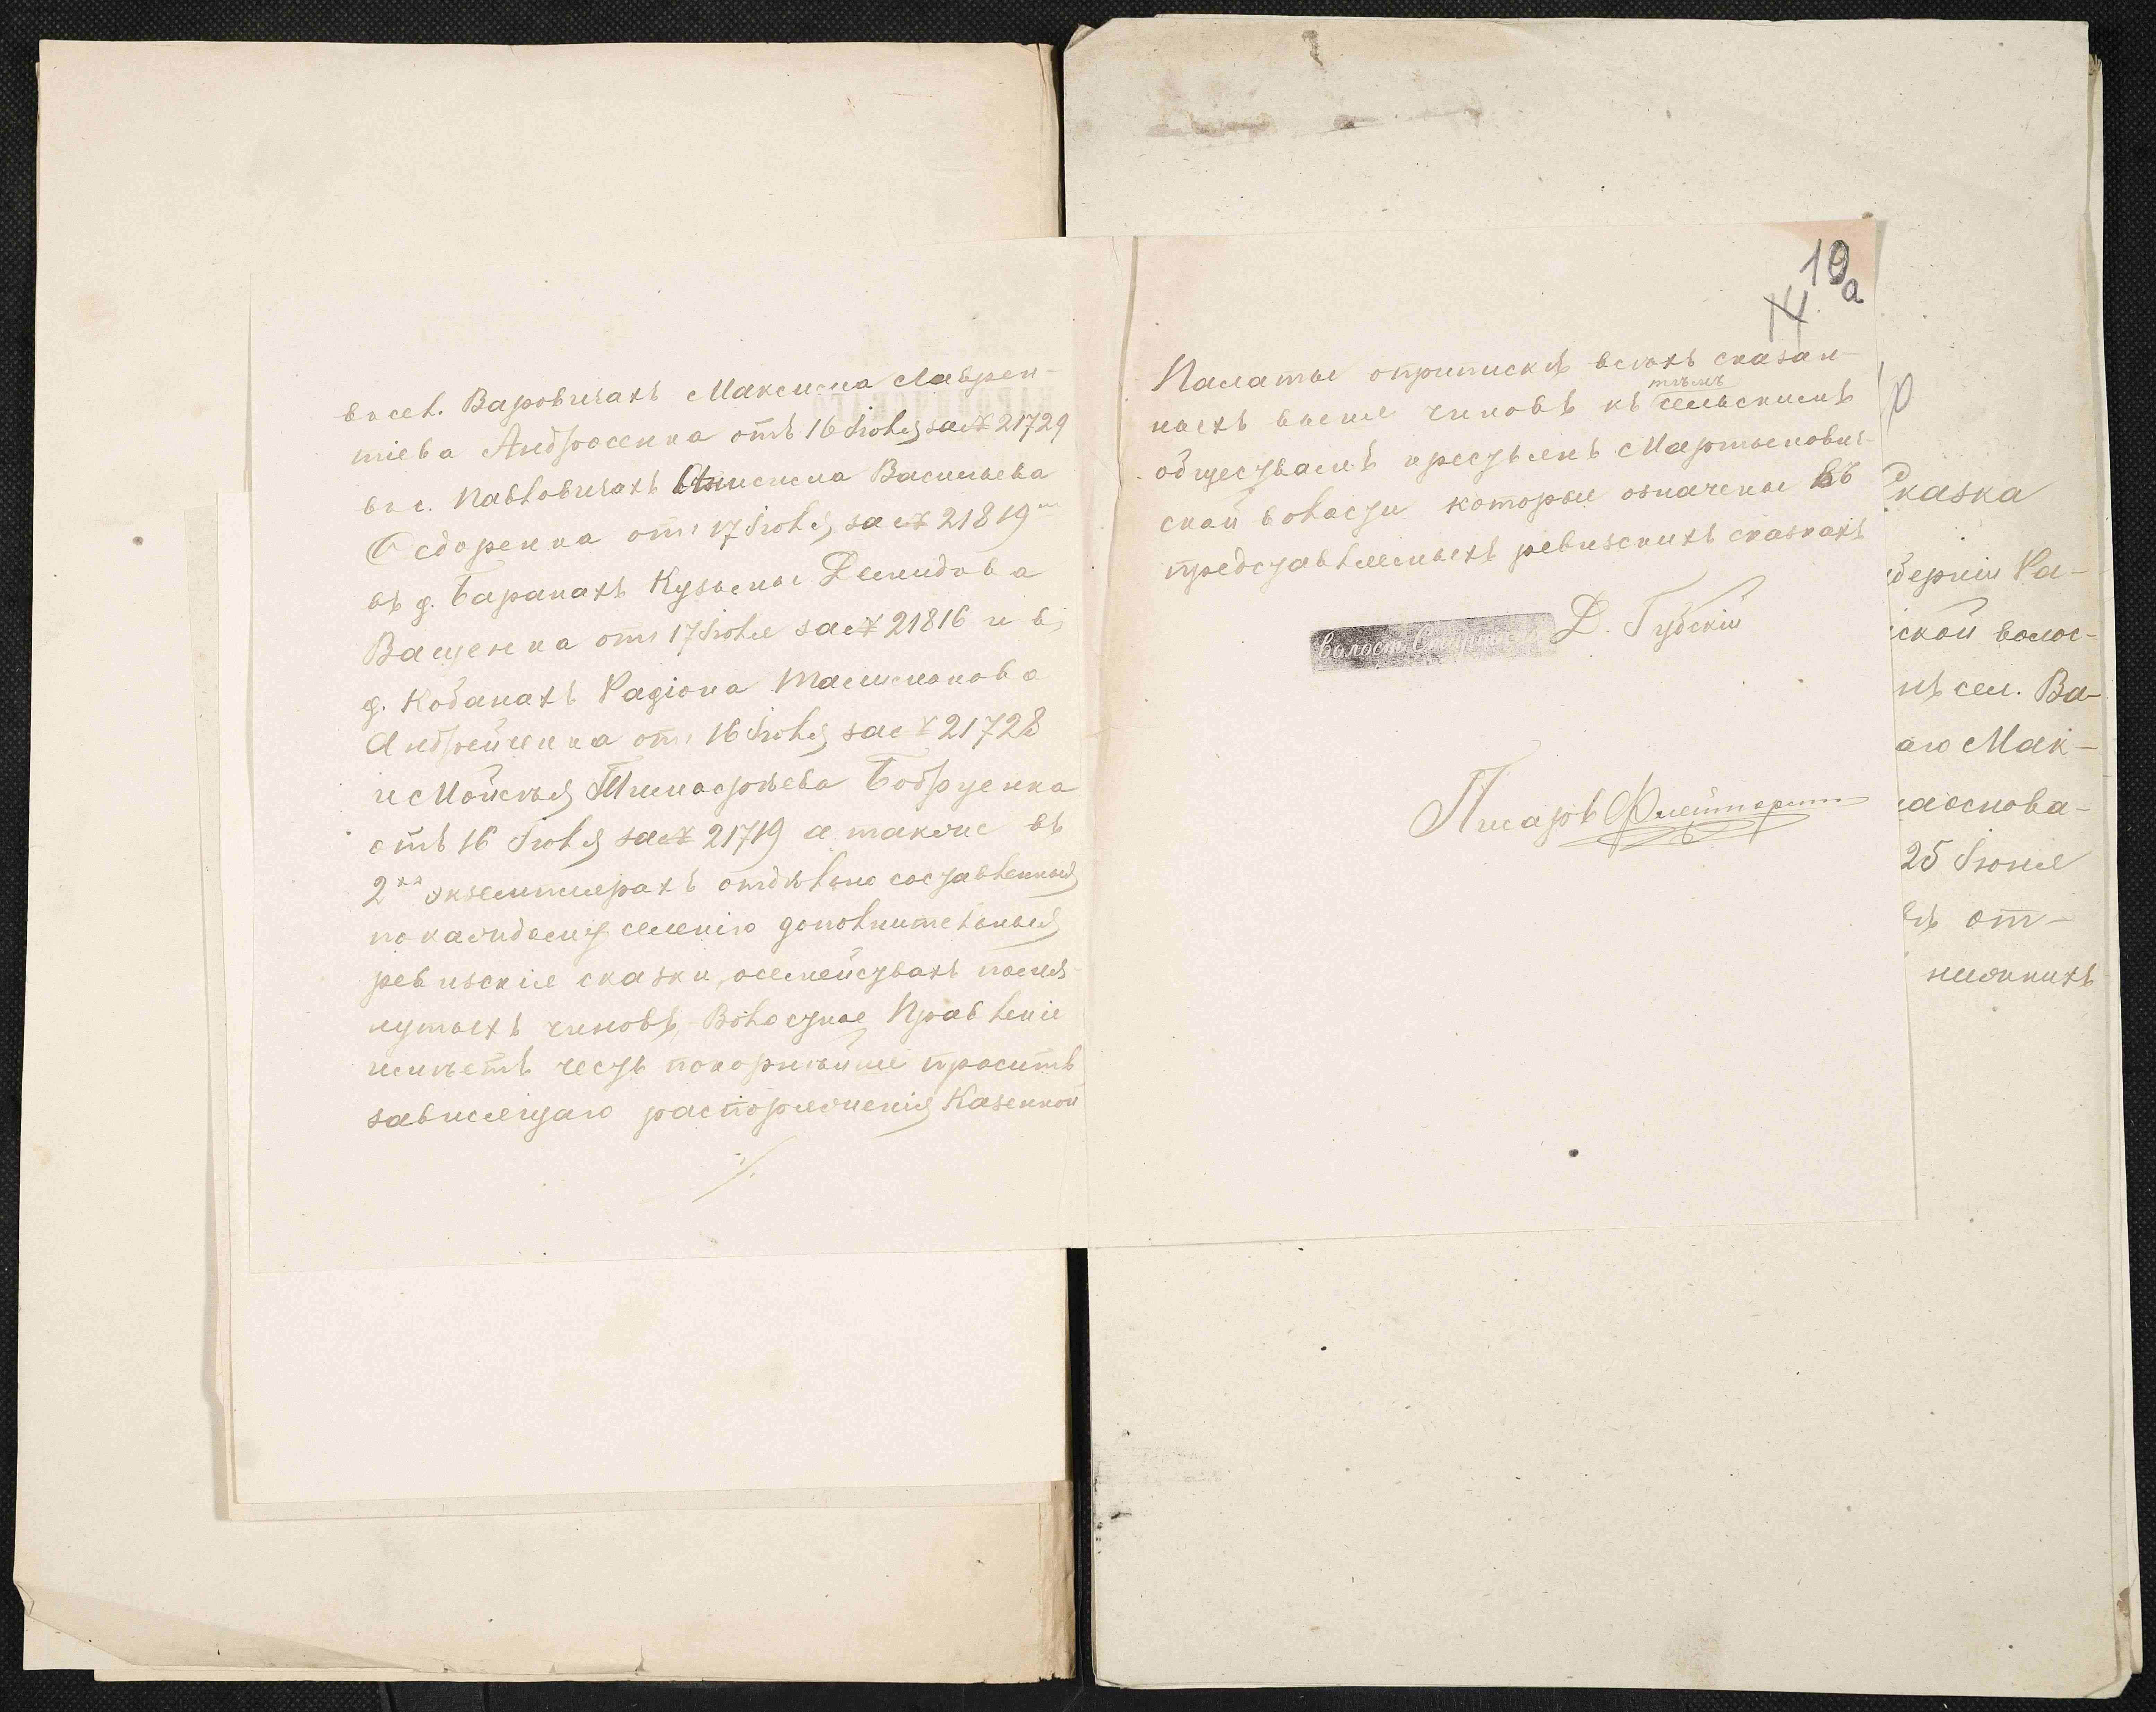 въ сел. Варовичахъ Максима Лаврен-
тіева Андросенка отъ 16 Іюля за № 21729
въ с. Павловичахъ Анисима Васильева
Сидоренка отъ 17 Іюля за № 21819
въ д. Баранахъ Кузьмы Демидова
Ващенка отъ 17 Іюля за № 21816 и въ
д. Кобанахъ Радіона
Андрейченка отъ 16 Іюля за № 21728
и Мойсѣя Тимофѣева Бобруенка
отъ 16 Іюля за № 21719 а также въ
2хъ экземплярахъ отдѣльно составленныя
по каждому селенію дополнительныя
ревизскія сказки, о семействахъ помя-
нутыхъ чиновъ, Волостное Правленіе
имѣетъ честь покорнѣйше просить
зависящаго распоряженія Казенной
./.
19а
14
Палаты о припискѣ всѣхъ сказан-
ныхъ выше чиновъ къ тѣмъ сельскимъ
обществамъ крестьянъ Мартынович-
ской волости которые означены въ
представляемыхъ ревизскихъ сказкахъ
Волост. Старшина Д. Губскій
Писарь
Сказка
губерніи Ра-
ской волос-
сел. Ва-
Мак-
на основа-
25 Іюня
от-
нижнихъ